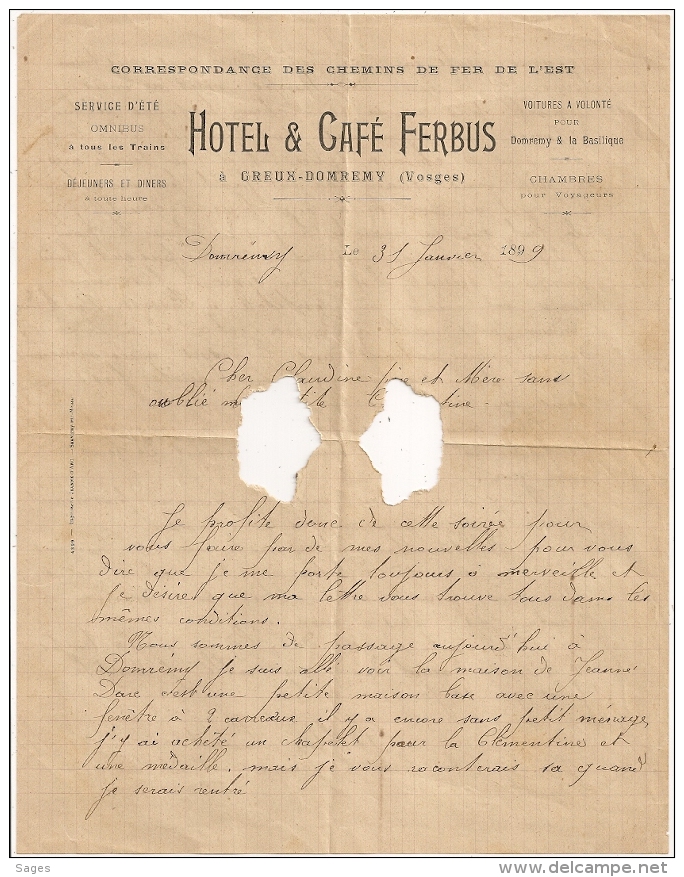 CORRESPONDANCE DES CHEMINS DE FER DE L'EST
SERVICE D'ÉTÉ
OMNIBUS
à tous les Trains
DÉJEUNERS ET DINERS
à toute heure
HOTEL & CAFÉ FERBUS
à GREUX-DOMREMY (Vosges)
VOITURES A VOLONTÉ
POUR
Domremy & la Basilique
CHAMBRES
pour Voyageurs
Domrémy Le 31 Janvier 1899
Cher Claudine et Mère sans
oublié
Je profite donc de cette soirée pour
vous faire par de mes nouvelles pour vous
dire que je me porte toujours à merveille et
je désire que ma lettre vous trouve tous dans les
mêmes conditions.
Nous sommes de passage aujourd'hui à
Domremy je suis allé voir la maison de Jeanne
Darc c'est une petite maison base avec une
fenêtre à 2 carreaux il y a encore sans petit ménage
j'y ai acheté un chapelet pour la Clementine et
une medaille. mais je vous raconterais sa quand
je serais rentré
Sages
www.delcampe.net